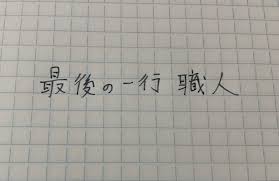 最後の一行 職人